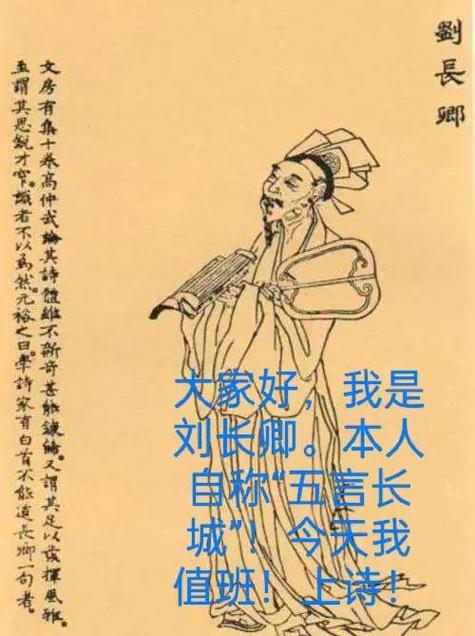 劉長卿
文房有集十卷高仲武論其詩體雖不新奇甚能鍊飾。又謂其足以發揮風雅。
至謂其思銳才窄。識者不以為然。元裕之曰。學詩家有白首不能道長卿一句者。
大家好，我是
刘长卿。本人
自称“五言长
城”！今天我
值班！上诗！